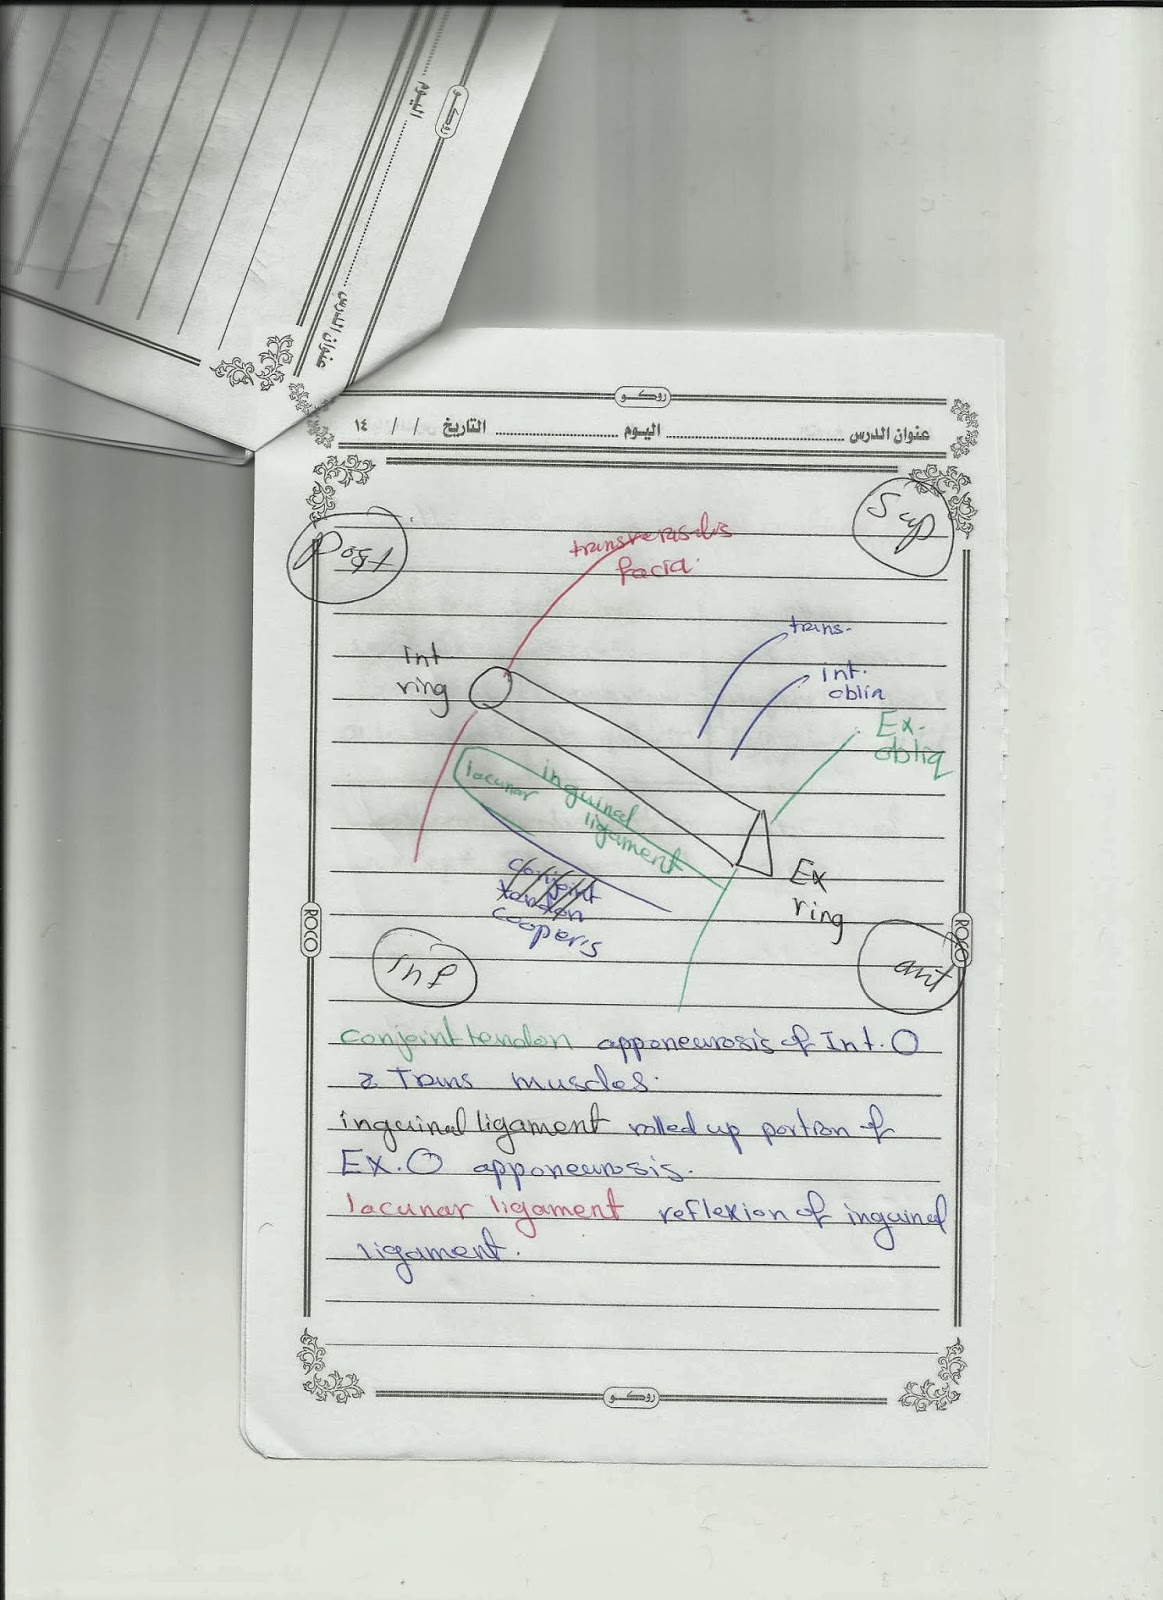 روكو
اليوم
عنوان الدرس
روكو
عنوان الدرس اليوم التاريخ / / ١٤
Post
Sup
transverasdis
facia.
trans.
int.
obliq
Int
ring
Ex.
obliq
inguinal
ligament
lacunar
Ex
ring
conjoint
tendon
cooper's
ROCO
ROCO
Inf
ant
conjoint tendon apponeurosis of Int. O
& Trans muscles.
inguinal ligament rolled up portion of
Ex. O apponeurosis.
lacunar ligament reflexion of inguinal
ligament.
روكو